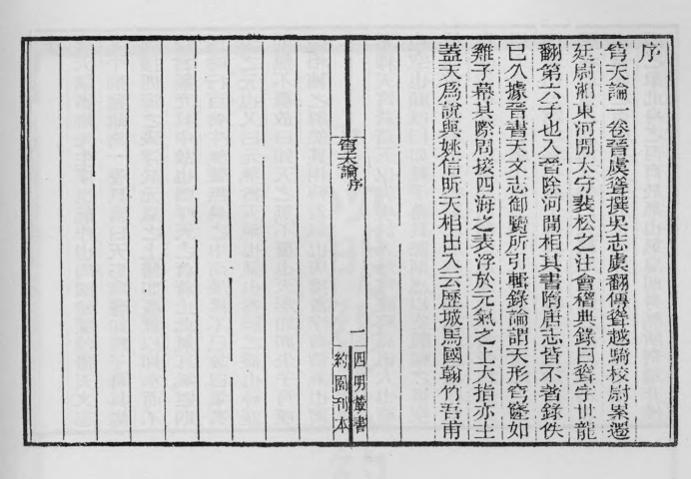 序
穹天論一卷晉虞聳撰吳志虞翻傳聳越騎校尉案遷
廷尉湘東河閒太守裴松之注會稽典錄曰聳字世龍
翻第六子也入晉除河閒相其書隋唐志皆不著錄佚
已久據晉書天文志御覽所引輯錄論謂天形穹窿如
雞子幕其際周接四海之表浮於元氣之上大指亦主
蓋天爲說與姚信昕天相出入云歷城馬國翰竹吾甫
穹天論序
一
四明叢書
約園刊本